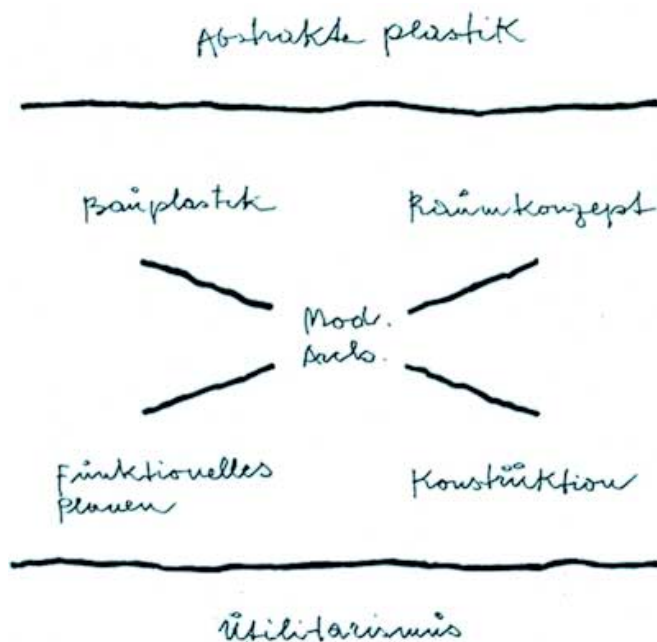 Abstrakte plastik
Bauplastik
Raumkonzept
Modr.
Arch.
Funktionelles
planen
Konstruktion
Utilitarismus